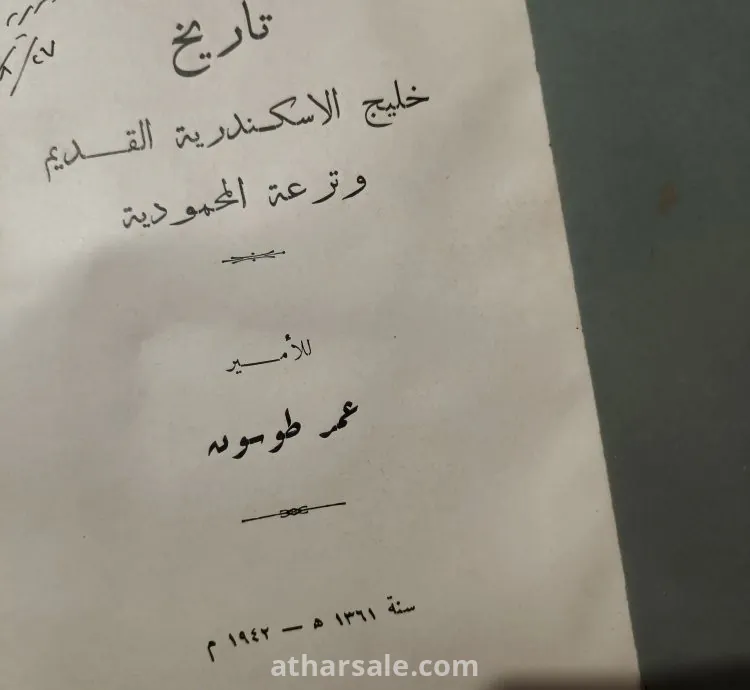 تاريخ
خليج الاسكندرية القديم
وترعة المحمودية
للأمير
عمر طوسون
سنة ١٣٦١ ه — ١٩٤٢ م
atharsale.com